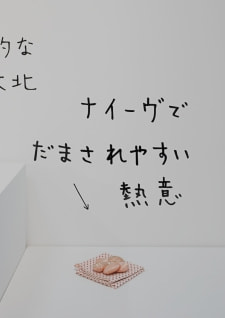 的な
北
ナイーヴで
だまされやすい
熱意